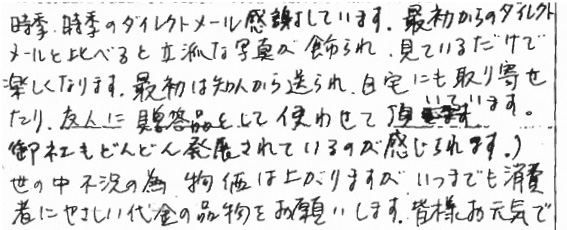 時季、時季のダイレクトメール感謝しています。最初からのダイレクト
メールと比べると立派な写真が飾られ、見ているだけで
楽しくなります。最初は知人から送られ、自宅にも取り寄せ
たり、友人に贈答品として使わせて頂いています。
御社もどんどん発展されているのが感じられます。)
世の中不況の為物価は上がりますが、いつまでも消費
者にやさしい代金の品物をお願いします。皆様お元気で